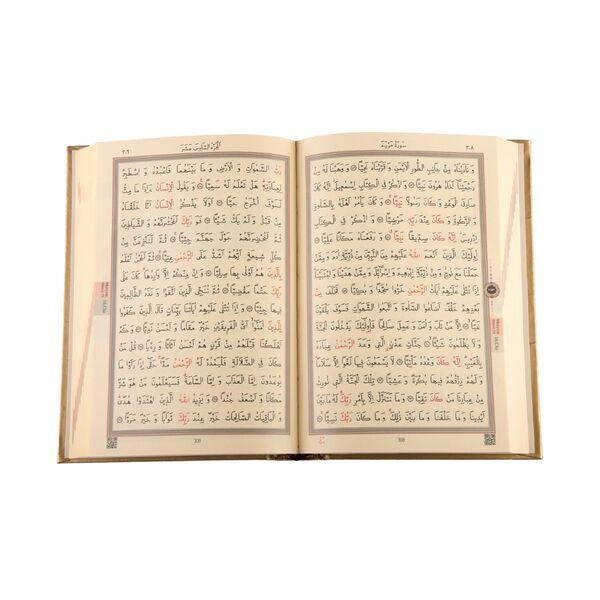 سُورَةُ مَرْيَمَ
٣٠٨
وَنَادَيْنَاهُ مِنْ جَانِبِ الطُّورِ الْاَيْمَنِ وَقَرَّبْنَاهُ نَجِيًّا ۝ وَوَهَبْنَا لَهُ مِنْ
رَحْمَتِنَا اَخَاهُ هٰرُونَ نَبِيًّا ۝ وَاذْكُرْ فِي الْكِتَابِ اِسْمٰعِيلَ اِنَّهُ
كَانَ صَادِقَ الْوَعْدِ وَكَانَ رَسُولًا نَبِيًّا ۝ وَكَانَ يَأْمُرُ اَهْلَهُ بِالصَّلٰوةِ
وَالزَّكٰوةِ وَكَانَ عِنْدَ رَبِّهِ مَرْضِيًّا ۝ وَاذْكُرْ فِي الْكِتَابِ
اِدْرِيسَ اِنَّهُ كَانَ صِدِّيقًا نَبِيًّا ۝ وَرَفَعْنَاهُ مَكَانًا عَلِيًّا ۝
اُولٰئِكَ الَّذِينَ اَنْعَمَ اللّٰهُ عَلَيْهِمْ مِنَ النَّبِيِّنَ مِنْ ذُرِّيَّةِ اٰدَمَ وَمِمَّنْ
حَمَلْنَا مَعَ نُوحٍ وَمِنْ ذُرِّيَّةِ اِبْرٰهِيمَ وَاِسْرَائِيلَ وَمِمَّنْ هَدَيْنَا وَاجْتَبَيْنَا
اِذَا تُتْلٰى عَلَيْهِمْ اٰيَاتُ الرَّحْمٰنِ خَرُّوا سُجَّدًا وَبُكِيًّا ۝ فَخَلَفَ مِنْ
بَعْدِهِمْ خَلْفٌ اَضَاعُوا الصَّلٰوةَ وَاتَّبَعُوا الشَّهَوَاتِ فَسَوْفَ يَلْقَوْنَ
غَيًّا ۝ اِلَّا مَنْ تَابَ وَاٰمَنَ وَعَمِلَ صَالِحًا فَاُولٰئِكَ يَدْخُلُونَ الْجَنَّةَ
وَلَا يُظْلَمُونَ شَيْئًا ۝ جَنَّاتِ عَدْنٍ الَّتِي وَعَدَ الرَّحْمٰنُ عِبَادَهُ
بِالْغَيْبِ اِنَّهُ كَانَ وَعْدُهُ مَأْتِيًّا ۝ لَا يَسْمَعُونَ فِيهَا لَغْوًا اِلَّا سَلَامًا
وَلَهُمْ رِزْقُهُمْ فِيهَا بُكْرَةً وَعَشِيًّا ۝ تِلْكَ الْجَنَّةُ الَّتِي نُورِثُ
مِنْ عِبَادِنَا مَنْ كَانَ تَقِيًّا ۝ وَمَا نَتَنَزَّلُ اِلَّا بِاَمْرِ رَبِّكَ لَهُ مَا بَيْنَ
اَيْدِينَا وَمَا خَلْفَنَا وَمَا بَيْنَ ذٰلِكَ وَمَا كَانَ رَبُّكَ نَسِيًّا ۝
اَلْجُزْءُ السَّادِسَ عَشَرَ
رَبُّ السَّمٰوَاتِ وَالْاَرْضِ وَمَا بَيْنَهُمَا فَاعْبُدْهُ وَاصْطَبِرْ
لِعِبَادَتِهِ هَلْ تَعْلَمُ لَهُ سَمِيًّا ۝ وَيَقُولُ الْاِنْسَانُ ءَاِذَا مَا مِتُّ
لَسَوْفَ اُخْرَجُ حَيًّا ۝ اَوَلَا يَذْكُرُ الْاِنْسَانُ اَنَّا خَلَقْنَاهُ
مِنْ قَبْلُ وَلَمْ يَكُ شَيْئًا ۝ فَوَرَبِّكَ لَنَحْشُرَنَّهُمْ وَالشَّيَاطِينَ
ثُمَّ لَنُحْضِرَنَّهُمْ حَوْلَ جَهَنَّمَ جِثِيًّا ۝ ثُمَّ لَنَنْزِعَنَّ مِنْ
كُلِّ شِيعَةٍ اَيُّهُمْ اَشَدُّ عَلَى الرَّحْمٰنِ عِتِيًّا ۝ ثُمَّ لَنَحْنُ اَعْلَمُ
بِالَّذِينَ هُمْ اَوْلٰى بِهَا صِلِيًّا ۝ وَاِنْ مِنْكُمْ اِلَّا وَارِدُهَا كَانَ عَلٰى
رَبِّكَ حَتْمًا مَقْضِيًّا ۝ ثُمَّ نُنَجِّي الَّذِينَ اتَّقَوْا وَنَذَرُ الظَّالِمِينَ
فِيهَا جِثِيًّا ۝ وَاِذَا تُتْلٰى عَلَيْهِمْ اٰيَاتُنَا بَيِّنَاتٍ قَالَ الَّذِينَ كَفَرُوا
لِلَّذِينَ اٰمَنُوا اَيُّ الْفَرِيقَيْنِ خَيْرٌ مَقَامًا وَاَحْسَنُ نَدِيًّا ۝ وَكَمْ
اَهْلَكْنَا قَبْلَهُمْ مِنْ قَرْنٍ هُمْ اَحْسَنُ اَثَاثًا وَرِءْيًا ۝ قُلْ مَنْ كَانَ
فِي الضَّلَالَةِ فَلْيَمْدُدْ لَهُ الرَّحْمٰنُ مَدًّا حَتّٰى اِذَا رَاَوْا مَا
يُوعَدُونَ اِمَّا الْعَذَابَ وَاِمَّا السَّاعَةَ فَسَيَعْلَمُونَ مَنْ هُوَ شَرٌّ
مَكَانًا وَاَضْعَفُ جُنْدًا ۝ وَيَزِيدُ اللّٰهُ الَّذِينَ اهْتَدَوْا هُدًى
وَالْبَاقِيَاتُ الصَّالِحَاتُ خَيْرٌ عِنْدَ رَبِّكَ ثَوَابًا وَخَيْرٌ مَرَدًّا ۝